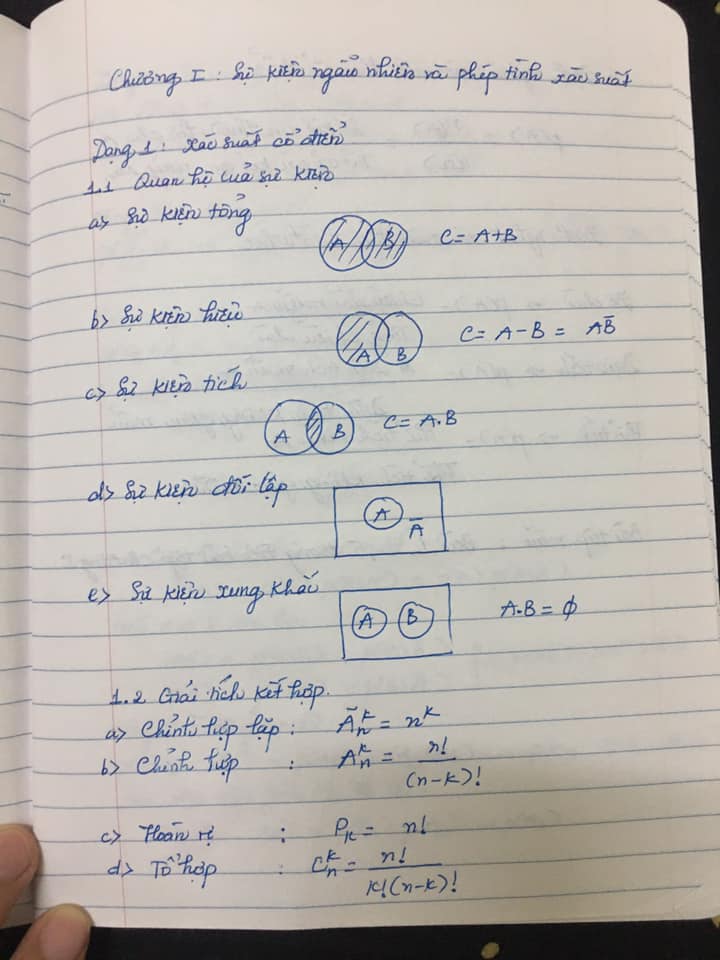 Chương I : Sự kiện ngẫu nhiên và phép tính xác suất
Dạng 1 : Xác suất cổ điển
1.1 Quan hệ của sự kiện
a> Sự kiện tổng
A B C = A+B
b> Sự kiện hiệu
A B C = A - B = AB̄
c> Sự kiện tích
A B C = A.B
d> Sự kiện đối lập
A Ā
e> Sự kiện xung khắc
A B A.B = ϕ
1.2 Giải tích kết hợp.
a> Chỉnh hợp lặp : Ãₙᵏ = nᵏ
b> Chỉnh hợp : Aₙᵏ = n! / (n-k)!
c> Hoán vị : Pₖ = n!
d> Tổ hợp : Cₙᵏ = n! / k!(n-k)!